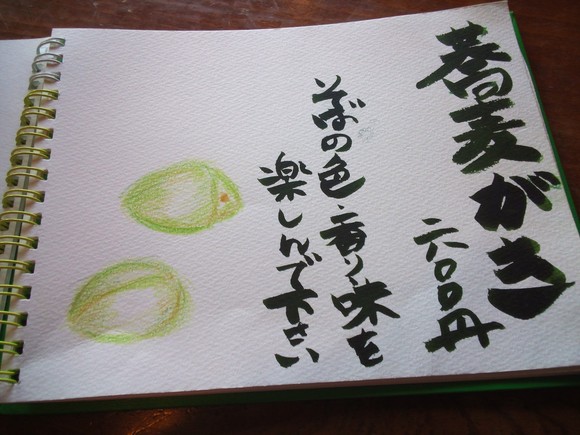 蕎麦がき
六〇〇円
そばの色・香り、味を
楽しんで下さい